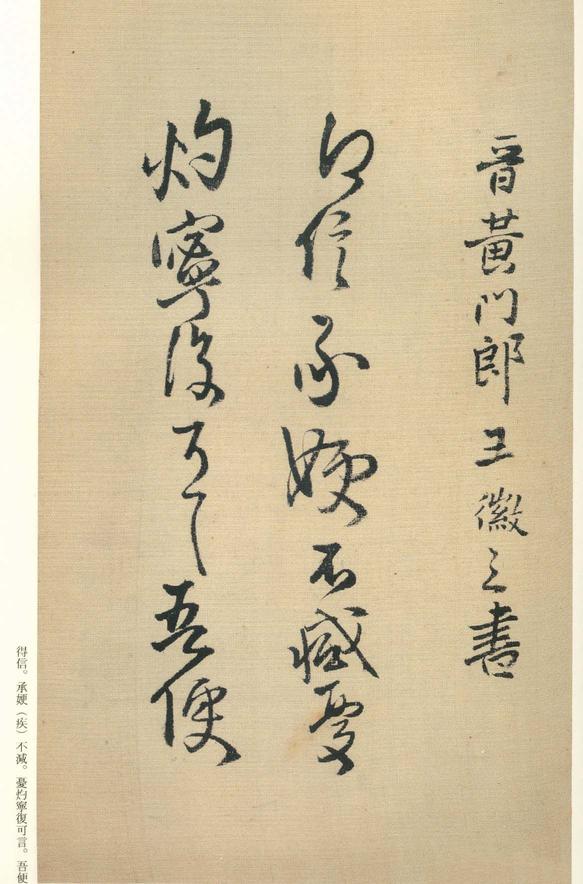 晉黃門郎王徽之書
得信承嫂不減憂
灼寧復可言吾便
得信。承嫂（疾）不減。憂灼寧復可言。吾便